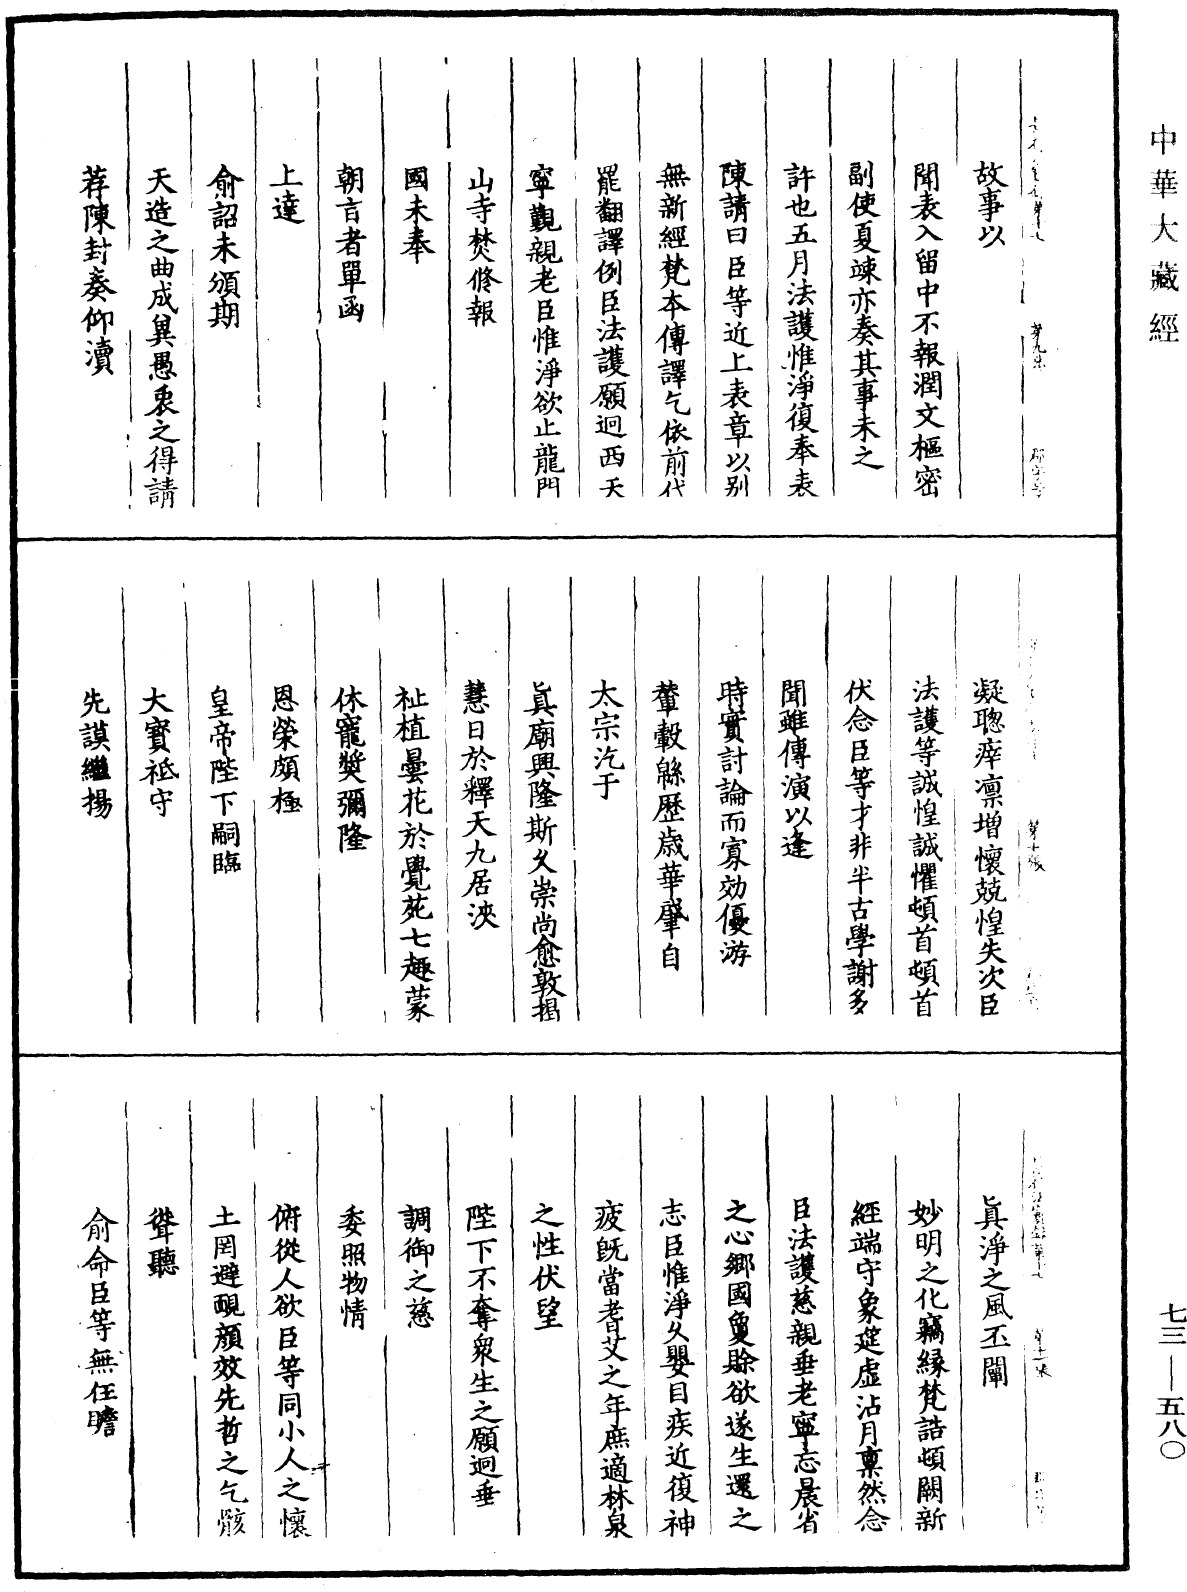 中華大藏經
故事以
聞表入留中不報潤文樞密
副使夏竦亦奏其事未之
許也五月法護惟淨復奉表
陳請曰臣等近上表章以別
無新經梵本傳譯乞依前代
罷翻譯例臣法護願迴西天
寧觀親老臣惟淨欲止龍門
山寺焚修報
國未奉
朝言者單函
上達
俞詔未頒期
天造之曲成異愚衷之得請
荐陳封奏仰瀆
凝聦瘁凛增懷兢惶失次臣
法護等誠惶誠懼頓首頓首
伏念臣等才非半古學謝多
聞雖傳演以逢
時實討論而寡効優游
輦轂緜歷歲華肇自
太宗汔于
眞廟興隆斯久崇尚愈敦揭
慧日於釋天九居泱
祉植曇花於覺苑七趣蒙
休寵奬彌隆
恩榮頗極
皇帝陛下嗣臨
大寳祗守
先謨繼揚
眞淨之風丕闡
妙明之化竊緣梵誥頓闕新
經端守象筵虛沾月禀然念
臣法護慈親垂老寧忘晨省
之心郷國敻賖欲遂生還之
志臣惟淨久嬰目疾近復神
疲旣當耆艾之年庶適林泉
之性伏望
陛下不奪衆生之願迴垂
調御之慈
委照物情
俯從人欲臣等同小人之懷
土罔避靦顔效先哲之乞骸
聳聽
俞命臣等無任瞻
七三—五八〇